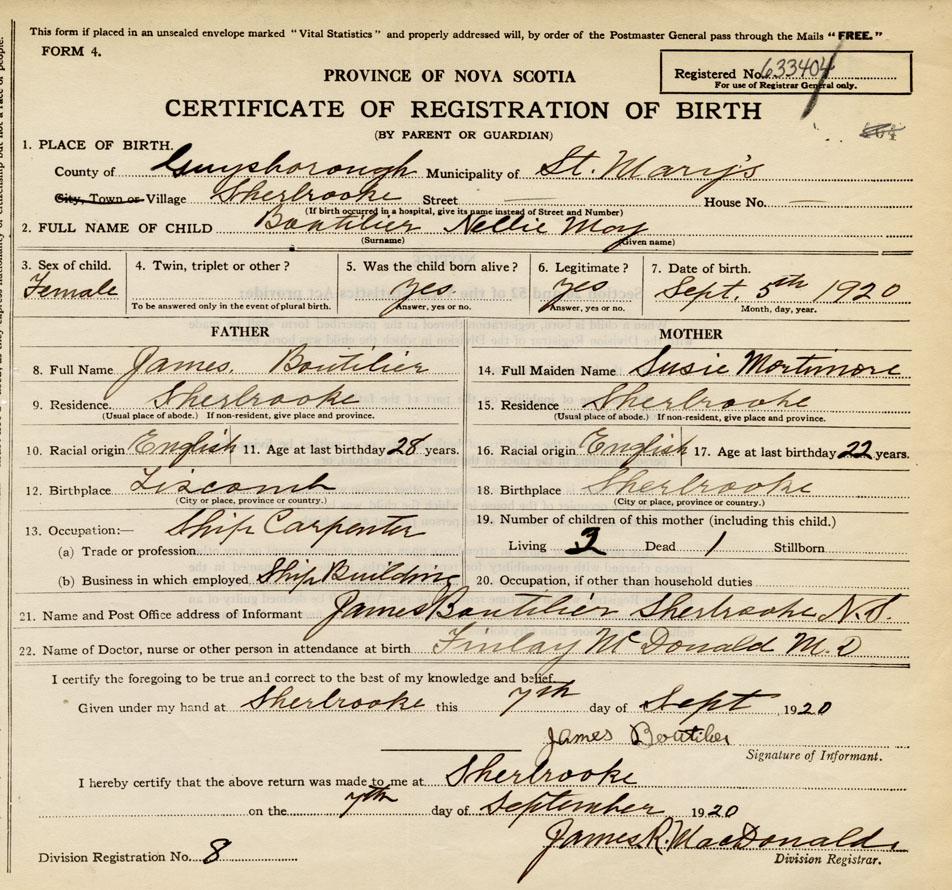 This form if placed in an unsealed envelope marked "Vital Statistics" and properly addressed will, by order of the Postmaster General pass through the Mails "FREE."
FORM 4.
PROVINCE OF NOVA SCOTIA
Registered No. 633404
For use of Registrar General only.
CERTIFICATE OF REGISTRATION OF BIRTH
(BY PARENT OR GUARDIAN)
1. PLACE OF BIRTH.
County of Guysborough Municipality of St. Mary's
City, Town or Village Sherbrooke Street — House No. —
(If birth occurred in a hospital, give its name instead of Street and Number)
2. FULL NAME OF CHILD Boutilier Nellie May
(Surname) (Given name)
3. Sex of child. 4. Twin, triplet or other? 5. Was the child born alive? 6. Legitimate? 7. Date of birth.
Female yes. yes Sept. 5th 1920
To be answered only in the event of plural birth. Answer, yes or no. Answer, yes or no. Month, day, year.
FATHER MOTHER
8. Full Name James. Boutilier 14. Full Maiden Name Susie Mortimore
9. Residence. Sherbrooke 15. Residence Sherbrooke
(Usual place of abode.) If non-resident, give place and province. (Usual place of abode.) If non-resident, give place and province.
10. Racial origin English 11. Age at last birthday 28 years. 16. Racial origin English 17. Age at last birthday 22 years.
12. Birthplace Liscomb 18. Birthplace Sherbrooke
(City or place, province or country.) (City or place, province or country.)
13. Occupation:— Ship Carpenter 19. Number of children of this mother (including this child.)
(a) Trade or profession Living Dead 1 Stillborn
(b) Business in which employed Ship Building 20. Occupation, if other than household duties
21. Name and Post Office address of Informant James Boutilier Sherbrooke, N.S.
22. Name of Doctor, nurse or other person in attendance at birth Finlay McDonald M.D
I certify the foregoing to be true and correct to the best of my knowledge and belief.
Given under my hand at Sherbrooke this 7th day of Sept, 1920
James Boutilier
Signature of Informant.
I hereby certify that the above return was made to me at Sherbrooke
on the 7th day of September 1920
James R. MacDonald.
Division Registration No. 8 Division Registrar.